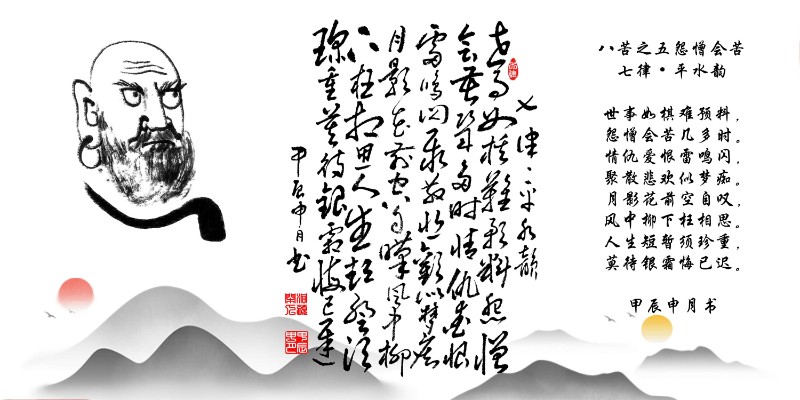 七律·平水韵
世事如棋难预料怨憎
会苦几多时情仇爱恨
雷鸣闪聚散悲欢似梦痴
月影花前空自叹风中柳
下枉相思人生短暂须
珍重莫待银霜悔已迟
甲辰申月书
八苦之五怨憎会苦
七律·平水韵
世事如棋难预料，
怨憎会苦几多时。
情仇爱恨雷鸣闪，
聚散悲欢似梦痴。
月影花前空自叹，
风中柳下枉相思。
人生短暂须珍重，
莫待银霜悔已迟。
甲辰申月书